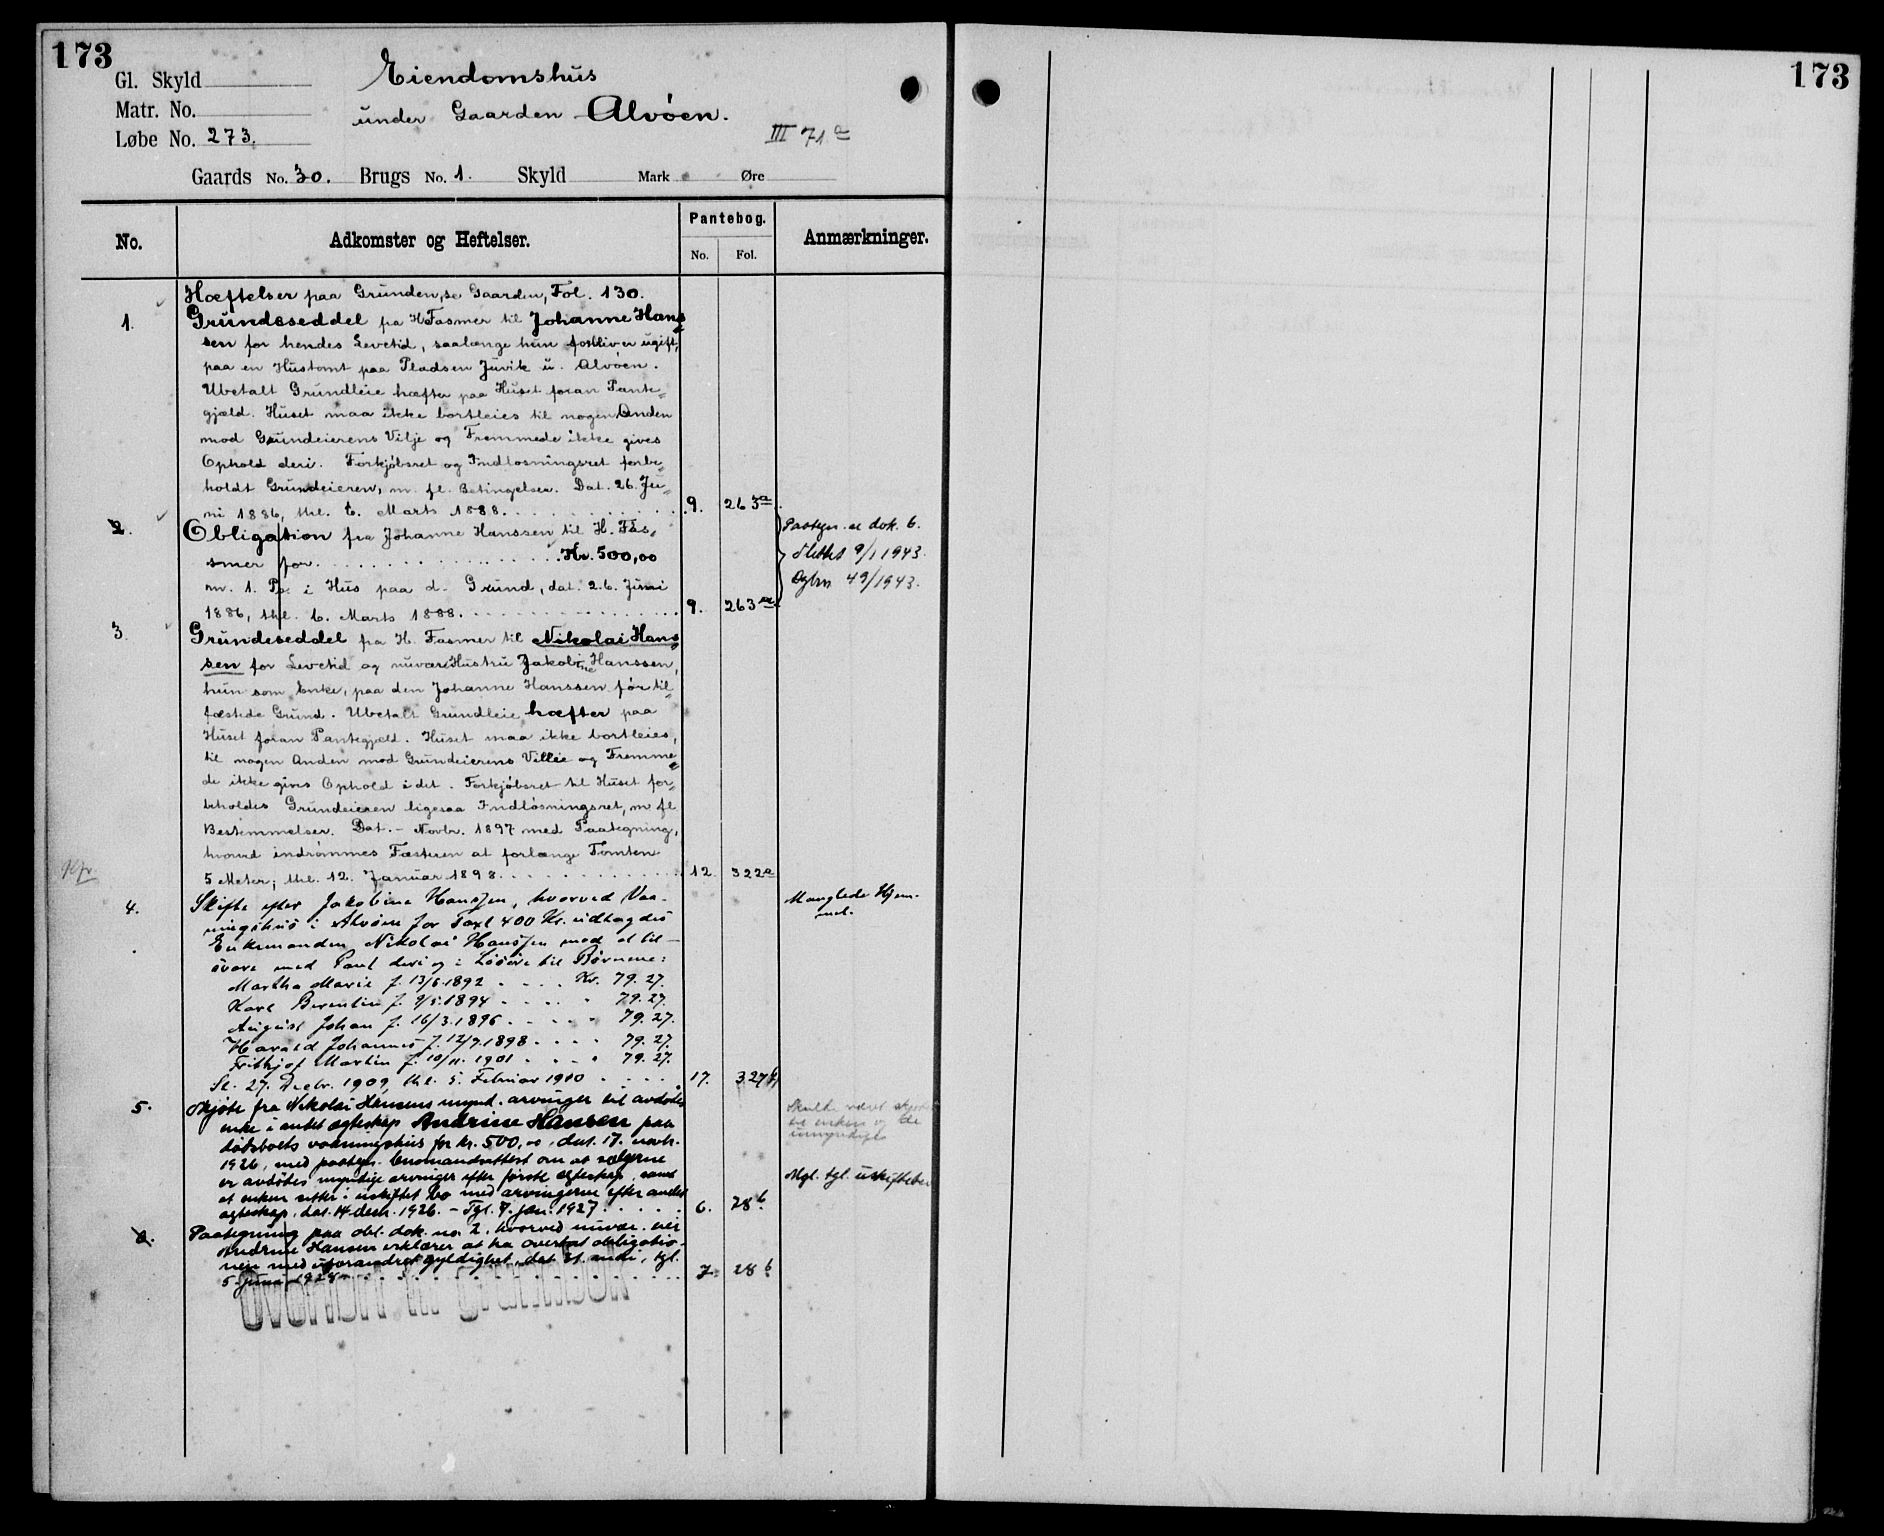 173
173
Gl. Skyld
Eiendomshus
Matr. No.
under Gaarden Alvøen.
Løbe No. 273.
III 71 a
Gaards No. 30. Brugs No. 1. Skyld Mark Øre
No.
Adkomster og Heftelser.
Pantebog.
No. Fol.
Anmærkninger.
Hæftelser paa Grunden, se Gaarden, Fol. 130.
1. Grundseddel fra H Fasmer til Johanne Hans=
sen for hendes Levetid, saalænge hun forbliver ugift,
paa en Hustomt paa Pladsen Juvik u. Alvøen.
Ubetalt Grundleie hæfter paa Huset foran Pante=
gjæld. Huset maa ikke bortleies til nogen Anden
mod Grundeierens Vilje og Fremmede ikke gives
Ophold deri. Forkjøbsret og Indløsningsret forbe=
holdt Grundeieren, m. fl. Betingelser. Dat. 26. Ju=
ni 1886, thl. 6. Marts 1888. 9. 263a
2. Obligation fra Johanne Hanssen til H. Fas=
smer for Kr. 500,00
m. 1. Pr. i Hus paa d. Grund, dat. 26. Juni
1886, thl. 6. Marts 1888. 9. 263a
Paategn. se dok. 6.
Slettet 9/1 1943.
Dgbnr 49/1943.
3. Grundseddel fra H. Fasmer til Nikolai Hans=
sen for Levetid og nuvær. Hustru Jakobine Hanssen,
hun som Enke, paa den Johanne Hanssen før til=
fæstede Grund. Ubetalt Grundleie hæfter paa
Huset foran Pantegjæld. Huset maa ikke bortleies,
til nogen Anden mod Grundeierens Villie og Fremme=
de ikke gives Ophold i det. Forkjøbsret til Huset for=
beholdes Grundeieren ligesaa Indløsningsret, m fl
Bestemmelser. Dat. - Novbr. 1897 med Paategning,
hvorved indrømmes Fæsteren at forlænge Tomten
5 Meter; thl. 12. Januar 1898. 12 322a
Kfr
4. Skifte efter Jakobine Hanssen, hvorved Vaa=
ningshus i Alvøen for Taxt 400 Kr. udlagdes
Enkemanden Nikolai Hanssen mod at til-
svare med Pant deri og i Løsøre til Børnene:
Martha Marie f. 13/6.1892 Kr. 79.27.
Karl Berentin f. 9/5.1894 " 79.27.
August Johan f. 16/3.1896 " 79.27.
Harald Johannes f. 12/9.1898 79.27.
Frithjof Martin f. 10/11.1901 " 79.27.
Sl. 27. Decbr. 1909, thl. 5. Februar 1910 17. 327b
Manglede Hjem-
mel.
5. Skjøte fra Nikolai Hansens mynd. arvinger til avdødes
enke i andet ægteskap Andrine Hansen paa
dødsboets vaaningshus for kr. 500,00, dat. 17. novbr.
1926, med paategn. lensmandsattest om at sælgerne
er avdødes myndige arvinger efter første ægteskap, samt
at enken sitter i uskiftet bo med arvingerne efter andet
ægteskap, dat. 14 decbr. 1926. - Tgl. 7. jan. 1927. 6. 28b.
Skulde været skjøte
til enken og de
umyndige
Mgl. tgl. uskiftebev
6. Paategning paa obl. dok. no. 2, hvorved nuvær. eier
Andrine Hansen erklærer at ha overtat obligatio-
nen med uforandret gyldighet, dat. 31. mai, tgl.
5. juni 1928. 7. 28b
Overført til grunnbok